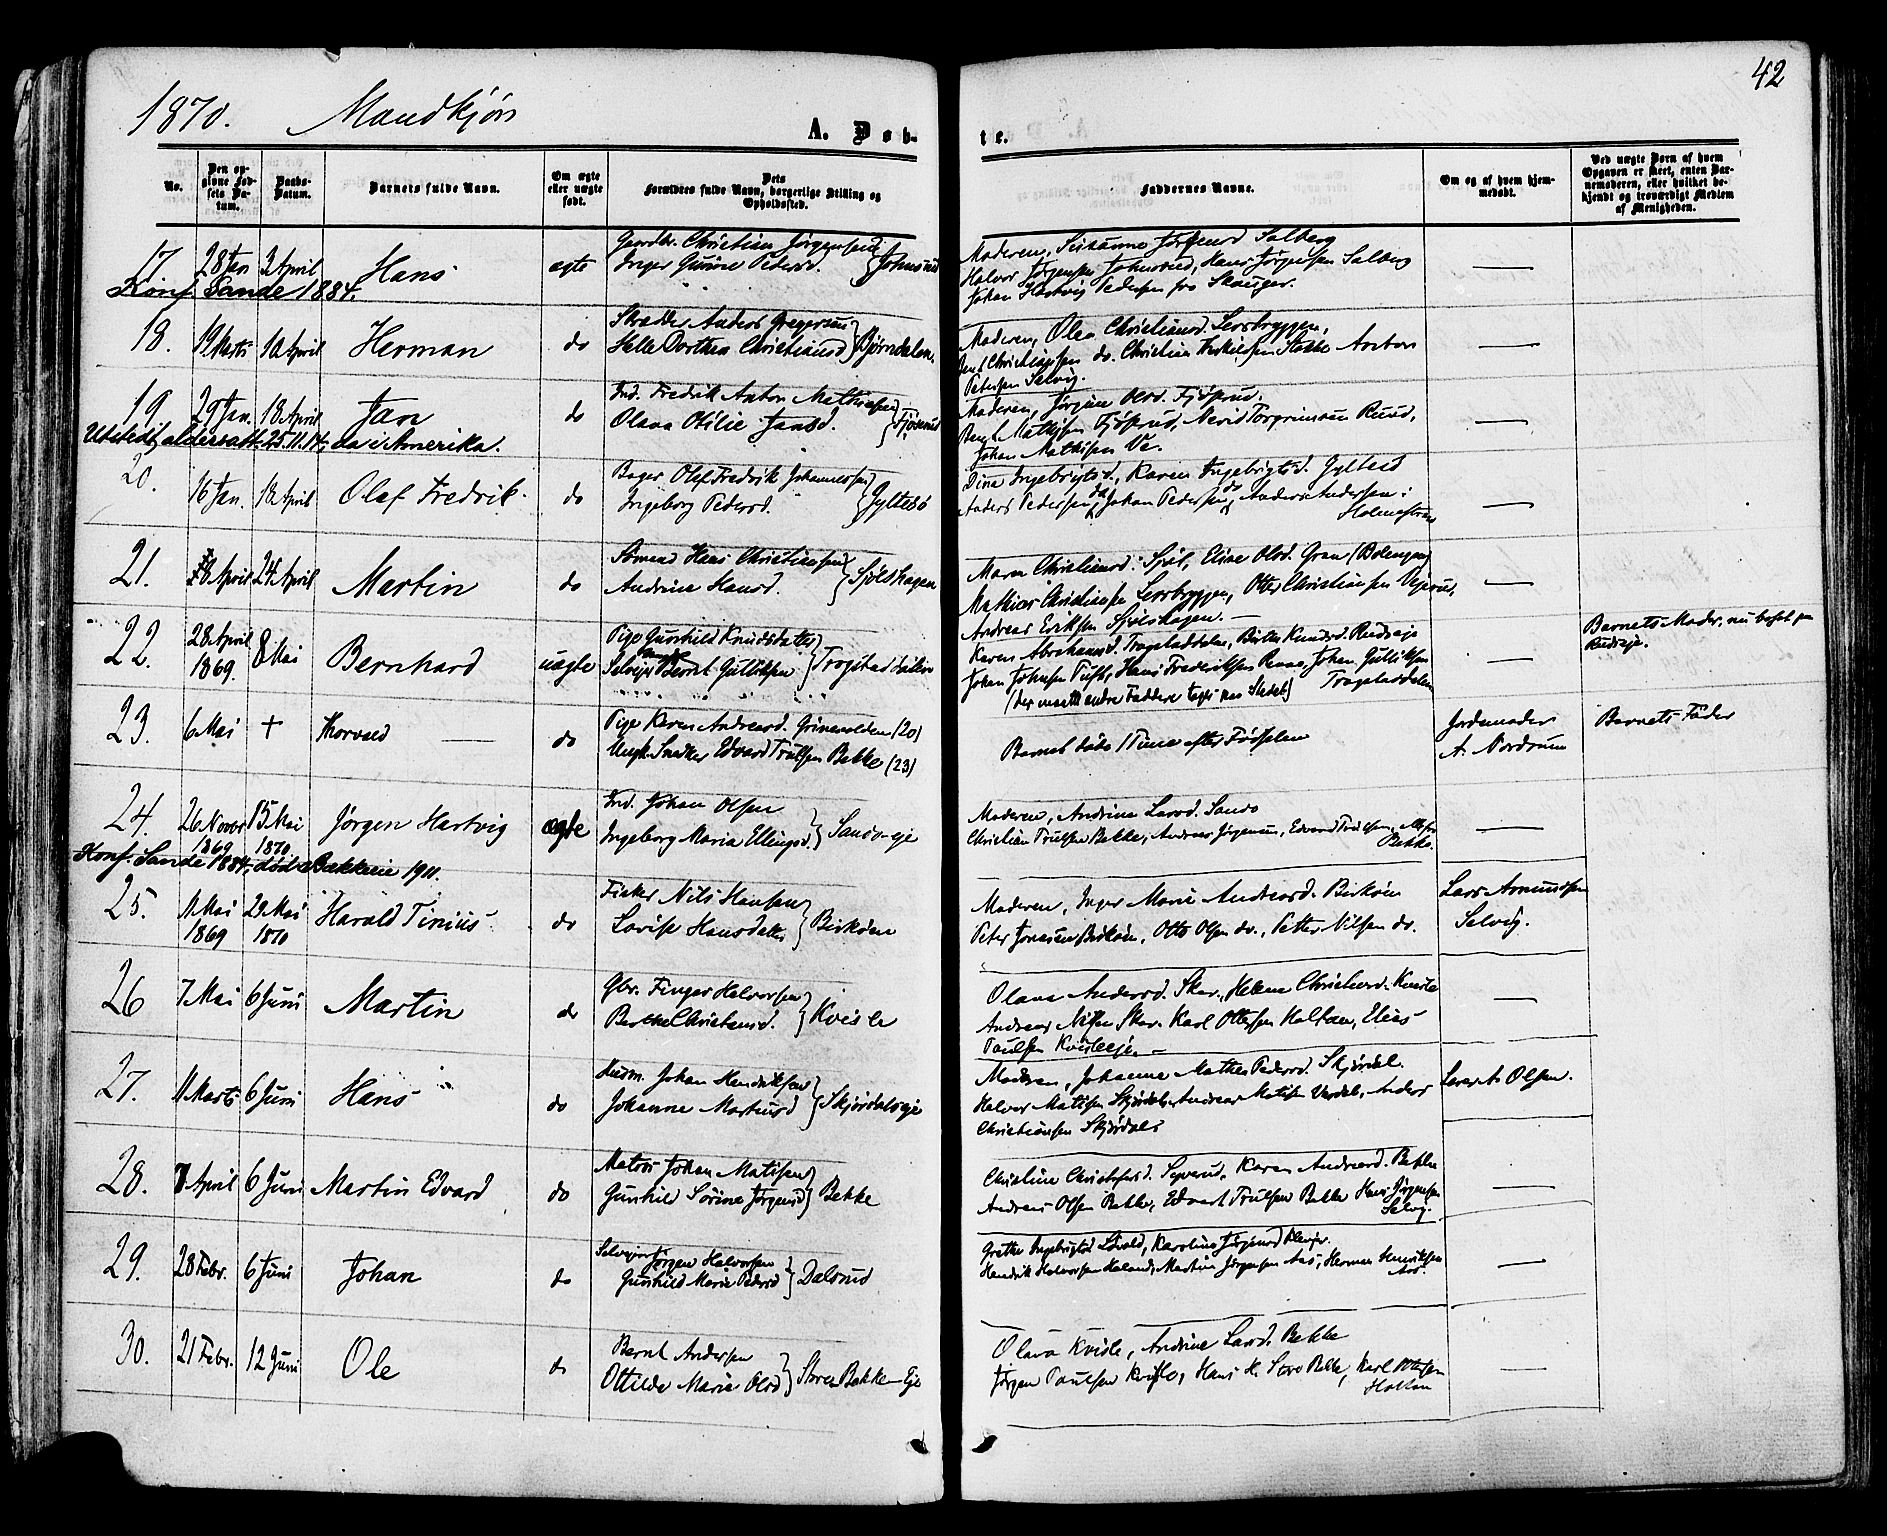 42
1870. Mandkjøn
A. Døb-
te.
No.
Den op-
givne Fød-
sels Da-
tum.
Daabs-
Datum.
Barnets fulde Navn.
Om ægte
eller uægte
født.
Dets
Forældres fulde Navn, borgerlige Stilling og
Opholdssted.
Faddernes Navne.
Om og af hvem hjem-
medøbt.
Ved uægte Børn af hvem
Opgaven er skeet, enten Bar-
nemoderen, eller hvilket be-
kjendt og troværdigt Medlem
af Menigheden.
17. 28 Jan 3 April Hans ægte
Gaardbr. Christian Jørgensen
Inger Gurine Pedersd. Johnsrud
Moderen, Susanne Jørgensd Solberg
Halvor Jørgensen Johnsrud, Hans Jørgensen Solberg
Johan Hartvig Pedersen fra Skouger.
Konf. Sande 1884.
18. 19 Marts 10 April Herman do
Skrædder Anders Gregersen
Helle Dorthea Christiansd Bjørndalen.
Moderen, Olea Christiansd. Lersbryggen,
Bent Christiansen do. Christian Stokke Anton
Petersen Selvig.
19 29 Jan. 18 April Jan do
Ind. Fredrik Anton Mathisen
Olava Otilie Jansd.
Moderen, Jørgine Olsd. Fjøsrud,
Mathisen Fjøsrud, Torgrimsen Ruud,
Johan Mathisen Ve.
Utstedt aldersatt. 25.11.14, da i Amerika.
20. 16 Jan. 18 April Olaf Fredrik. do
Bager Olaf Fredrik Johannessen
Ingeborg Pedersd. Gyltesø
Dina Ingebrigtsd., Karen Ingebrigtsd. Gyltesø
Anders Pedersen do, Johan Pedersen do, Anders Andersen i
Holmestrand
21. 18 April 24 April Martin do
Sømand Hans Christiansen
Andrine Hansd. Sjølshagen
Maren Christiansd. Sjøl, Eline Olsd. Gran (Bolengen)
Mathias Christiansen Lersbryggen, Otter Christiansen
Andreas Eriksen Sjølshagen.
22. 28 April
1869. 8 Mai Bernhard uægte
Pige Gunhild Knudsdatter
Selvejer Bernt Gulliksen
Karen Abrahamsd. Trogstaddalen, Birthe Knudsd. Rudseje
Johan Johnsen Tuft, Hans Frederiksen Johan Gulliksen
Trogstaddalen
Barnets Moder, nu bosat paa
Rudseje.
23. 6 Mai + Thorvald do
Pige Karen Andreasd. Grimsvolden (20)
Ungk. Snedker Edvard Trulsen Bekke (23)
Barnet døde 1 Time efter Fødselen
Jordemoder
A. Nordrum
Barnets Fader
24. 26 Novbr
1869 15 Mai
1870. Jørgen Hartvig ægte
Ind. Johan Olsen
Ingeborg Maria Ellingsd. Sando-eje
Moderen, Andrine Larsd. Sando
Christian Trulsen Bekke, Andreas Jørgensen, Edvard Trulsen,
Bekke.
Konf. Sande 1884, død 1911.
25. 11 Mai
1869 29 Mai
1870 Harald Tinius do
Fisker Nils Hansen
Lovise Hansdatter Birkøen
Moderen, Inger Marie Andreasd. Birkøen
Peter Jonassen Birkøen, Otto Olsen do., Petter Nilsen do.
Lars Amundsen
Selvig.
26 7 Mai 6 Juni Martin do
Gbr. Halvorsen
Berthe Christensd. Kvisle
Olava Andersd. Skar, Helene Christensd. Kvisle
Andreas Nilsen Skar. Karl Ottersen Holtan, Elias
Paulsen Kvisleeje.
27. 11 Marts 6 Juni Hans do
Husm. Johan Hendriksen
Johanne Mathiasd Skjørdalseje
Moderen, Johanne Mathea Pedersd. Skjørdal.
Halvor Matisen Skjørdal, Andreas Matisen Anders
Christiansen Skjørdals
Olsen.
28. 7 April 6 Juni Martin Edvard do
Matros Johan Matisen
Gunhild Sørine Jørgensd Bekke
Christine Christofersd. Karen Andreasd. Bekke
Andreas Olsen Bekke, Edvart Trulsen Bekke Hans Jørgensen
Selvig.
29. 28 Febr. 6 Juni Johan do
Selvejer Jørgen Halvorsen
Gunhild Marie Pedersd Dalsrud
Grethe Ingebrigtsd Karoline Jørgensd
Hendrik Halvorsen Martin Jørgensen Aas, Herman Henriksen
Aas.
30. 21 Febr. 12 Juni Ole do
Bernt Andersen
Ottilde Marie Olsd Store Bekke-Eje
Olava Kvisle, Andrine Larsd. Bekke
Jørgen Paulsen Kvisle, Hans H. Store Bekke, Karl Ottersen
Holtan